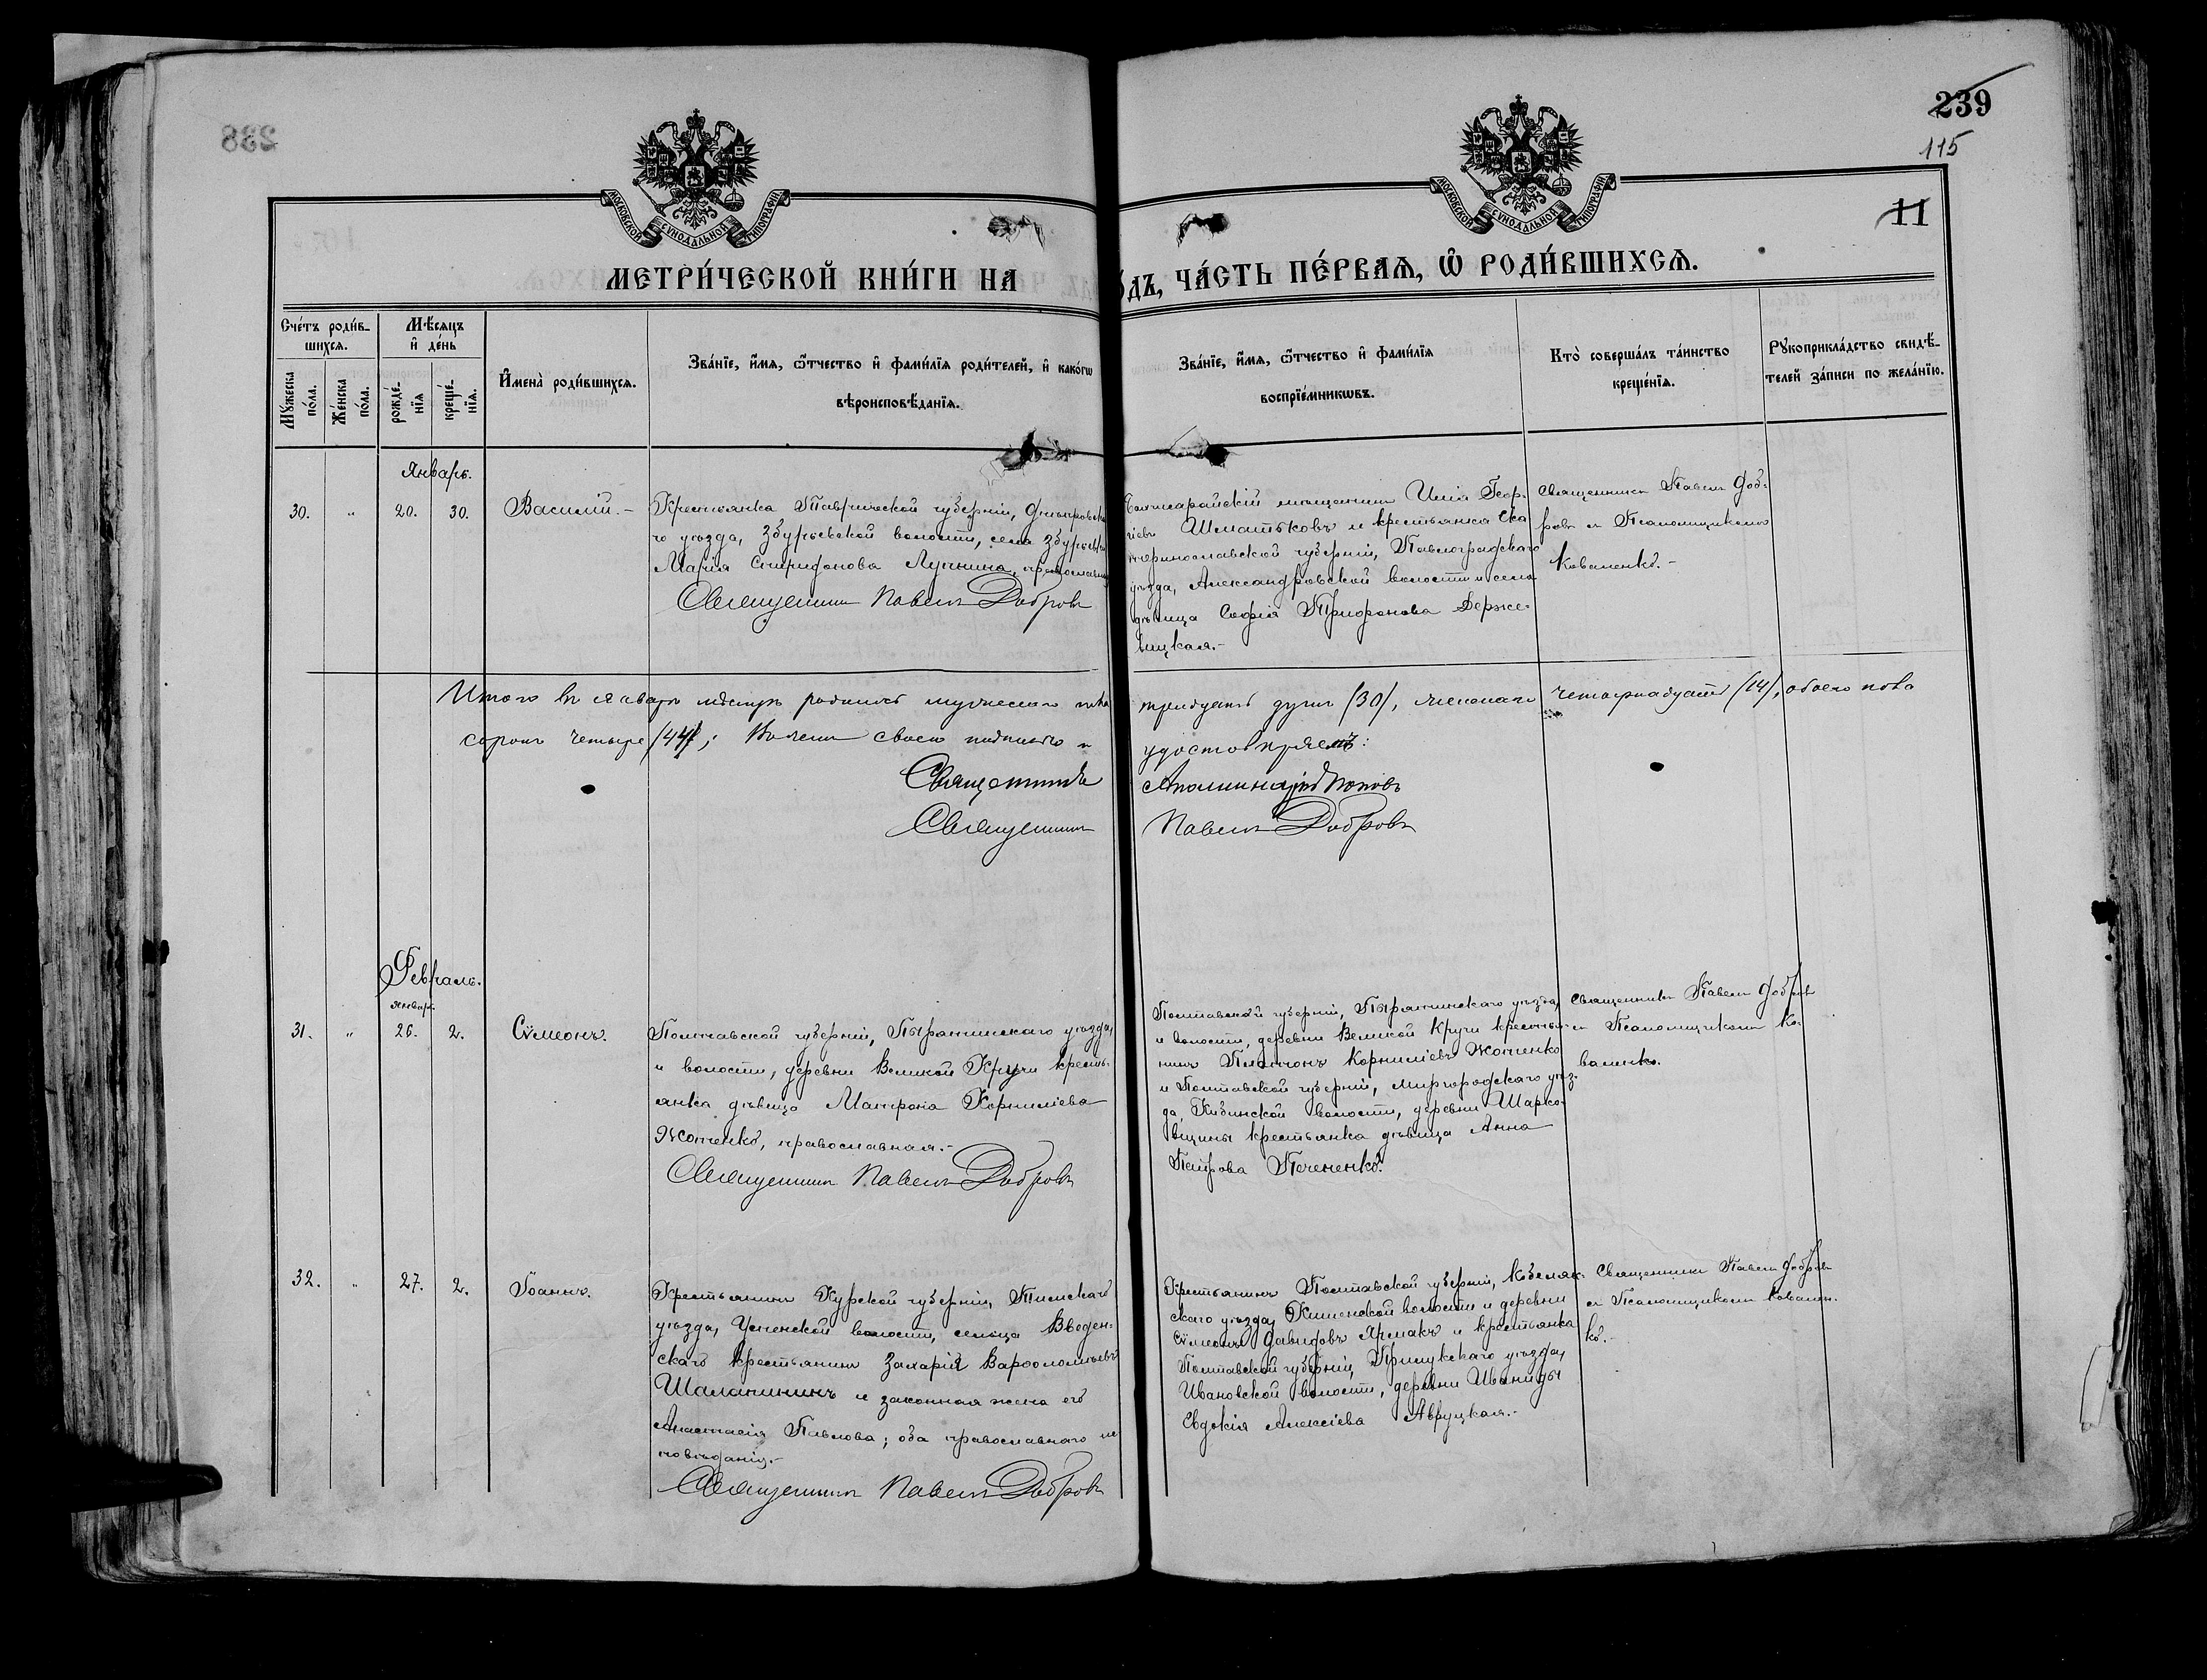 239
115
11
238
МОСКОВСКОЙ СѴНОДАЛЬНОЙ ТИПОГРАФІИ
МОСКОВСКОЙ СѴНОДАЛЬНОЙ ТИПОГРАФІИ
МЕТРИ́ЧЕСКОЙ КНИ́ГИ НА
ОДЪ, ЧА́СТЬ ПЕ́РВАЯ, Ѡ РОДИ́ВШИХСЯ.
Сче́тъ роди́в-
шихся.
Мꙋжеска по́ла.
Же́нска по́ла.
Мѣ́сяцъ и҆ де́нь
рожде́-
нїя
креще́-
нїя.
И҆мена̀ роди́вшихся.
Зва́нїе, и҆́мя, ѻ҆́тчество и҆ фами́лїя роди́телей, и҆ како́гѡ
вѣроисповѣ́данїя.
Зва́нїе, и҆́мя, ѻ҆́тчество и҆ фами́лїя
воспрїе́мникѡвъ.
Кто̀ соверша́лъ та́инство
креще́нїя.
Рꙋкоприкла́дство свидѣ́-
телей за́писи по жела́нїю.
Январь.
30. " 20. 30. Василій.-
Крестьянка Таврической губерніи, Днѣпровска-
го уѣзда, Збурьевской волости, села Збурьевки
Марія Спиридонова Лупнина, православная
Священникъ Павелъ Добровъ
Бахчисарайскій мѣщанинъ Илія Геор-
гіевъ Шматьковъ и крестьянка Ека-
теринославской губерніи, Павлоградскаго
уѣзда, Александровской волости и села
дѣвица Софія Трифонова Держе-
вицкая.-
Священникъ Павелъ Доб-
ровъ съ Псаломщикомъ
Коваленко.-
Итого въ январѣ мѣсяцѣ родилось мужескаго пола
тридцать душъ /30/, женскаго четырнадцать /14/, обоего пола
сорокъ четыре /44/; Въ чемъ своею подписью и
удостовѣряемъ:
Священникъ Аполлинарій Поповъ
Священникъ Павелъ Добровъ
Февраль.
январ.
31. " 26. 2. Сѵмеонъ.
Полтавской губерніи, Пырятинскаго уѣзда,
и волости, деревни Великой Кручи кресть-
янка дѣвица Матрона Корниліева
Жотченко, православная.-
Священникъ Павелъ Добровъ
Полтавской губерніи, Пырятинскаго уѣзда,
и волости, деревни Великой Кручи крестья-
нинъ Платонъ Корниліевъ Жотченко
и Полтавской губерніи, Миргородскаго уѣз-
да, Кибинской волости, деревни Шарко-
вщины крестьянка дѣвица Анна
Петрова Печененко.
Священникъ Павелъ Добровъ
съ Псаломщикомъ Ко-
валенко.
32. " 27. 2. Іоаннъ.
Крестьянинъ Курской губерніи, Тимскаго
уѣзда, Успенской волости, сельца Введен-
скаго крестьянинъ Захарій Варѳоломѣевъ
Шалапининъ и законная жена его
Анастасія Павлова; оба православнаго ис-
повѣданія.-
Священникъ Павелъ Добровъ
Крестьянинъ Полтавской губерніи, Кобеляк-
скаго уѣзда, Кишенской волости и деревни
Сѵмеонъ Давидовъ Ярмакъ и крестьянка
Полтавской губерніи, Прилукскаго уѣзда,
Ивановской волости, деревни Иваницы
Евдокія Алексіева Авруцкая.-
Священникъ Павелъ Добровъ
съ Псаломщикомъ Ковален-
ко.-